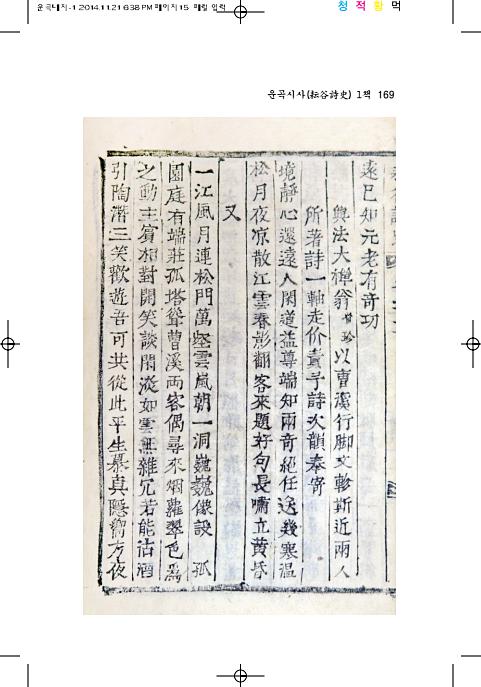 운곡내지-1 2014.11.21 6:38 PM 페이지15 매킬 입력
청 적 황 먹
운곡시사(耘谷詩史) 1책 169
遠已知元老有奇功
興法大禪翁 以曹溪行脚文軫斯近兩人
所著詩一軸走价責予詩次韻奉寄
境靜心還遠人閑道益尊端知兩奇絕任送幾寒溫
松月夜凉散江雲春影翻客來題好句長嘯立黃昏
又
一江風月連松門萬壑雲嵐朝一洞巍巍像設 孤
園庭有端莊孤塔聳曹溪兩客偶尋來烟蘿翠色爲
之動主賓相對開笑談閑淡如雲無雜冗若能沽酒
引陶潛三笑歡遊吾可共從此平生慕眞隱嚮方夜